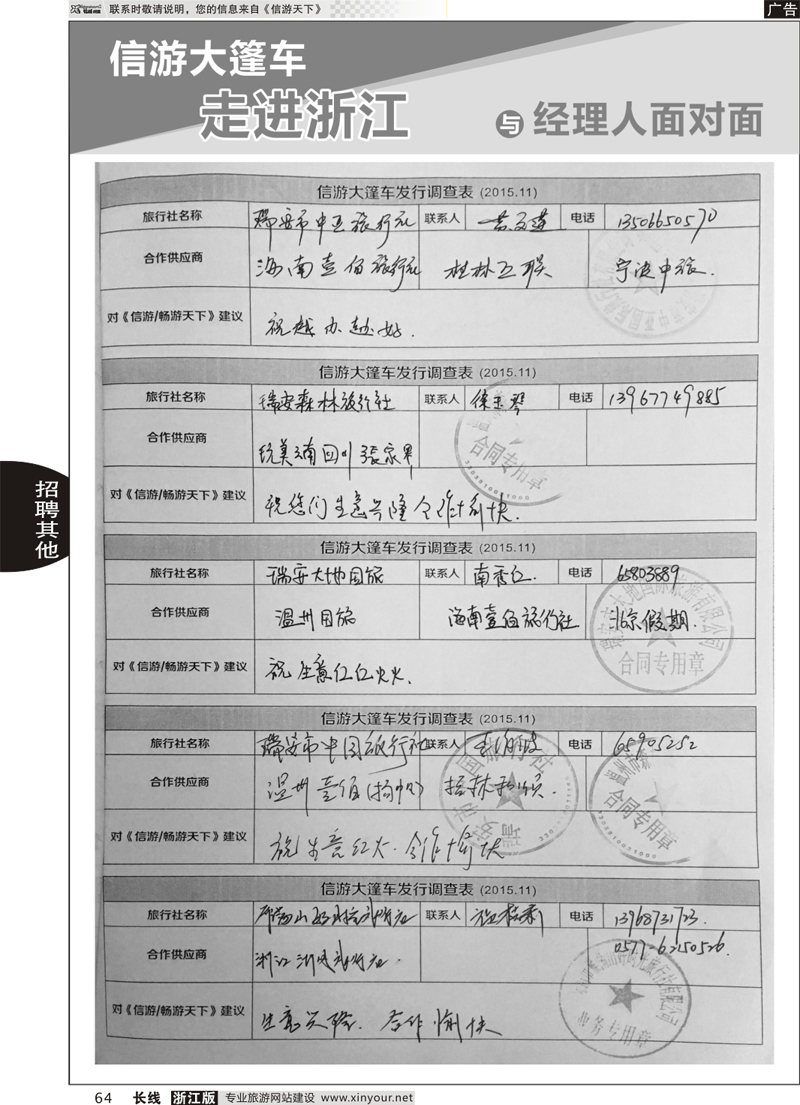 联系时敬请说明，您的信息来自《信游天下》
广告
信游大篷车
走进浙江 与 经理人面对面
信游大篷车发行调查表 (2015.11)
旅行社名称 瑞安市中亚旅行社 联系人 电话 13506650570
合作供应商 海南壹佰旅行社 桂林互联 宁波中旅.
对《信游/畅游天下》建议 祝越办越好.
信游大篷车发行调查表 (2015.11)
旅行社名称 瑞安森林旅行社 联系人 徐玉琴 电话 13967749885
合作供应商 统美云南四川张家界
合同专用章
对《信游/畅游天下》建议 祝您们生意兴隆合作愉快.
信游大篷车发行调查表 (2015.11)
旅行社名称 瑞安大地国旅 联系人 南秀仁. 电话 65803889
合作供应商 温州国旅 海南壹佰旅行社 北京假期.
合同专用章
对《信游/畅游天下》建议 祝生意红红火火.
信游大篷车发行调查表 (2015.11)
旅行社名称 瑞安市中国旅行社 联系人 电话 65905252
合作供应商 温州壹佰(扬帆) 桂林
合同专用章
对《信游/畅游天下》建议 祝生意红火.合作愉快
信游大篷车发行调查表 (2015.11)
旅行社名称 联系人 电话 13968731723.
0577-62150526.
合作供应商 浙江
业务专用章
对《信游/畅游天下》建议 生意兴隆. 合作愉快
招聘其他
64 长线 浙江版 专业旅游网站建设 www.xinyour.net